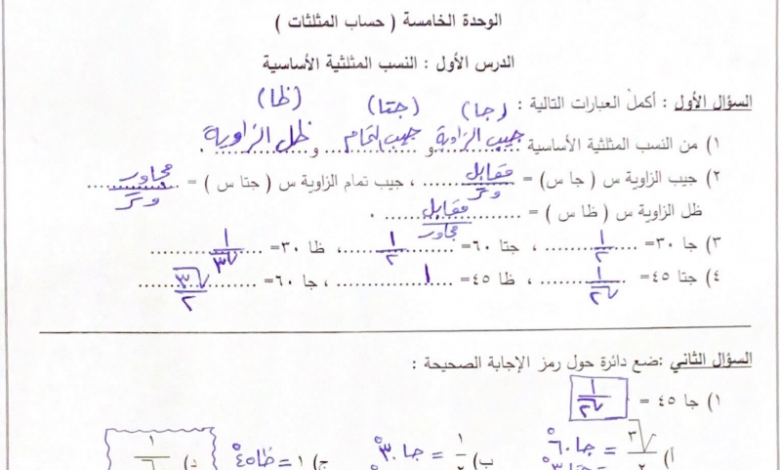 الوحدة الخامسة ( حساب المثلثات )
الدرس الأول : النسب المثلثية الأساسية
السؤال الأول : أكمل العبارات التالية :
(جا) (جتا) (ظا)
١) من النسب المثلثية الأساسية جيب الزاوية و جيب التمام و ظل الزاوية .
٢) جيب الزاوية س ( جا س) = مقابل/وتر ، جيب تمام الزاوية س ( جتا س ) = مجاور/وتر
ظل الزاوية س ( ظا س ) = مقابل/مجاور .
٣) جا ٣٠= ١/٢ ، جتا ٦٠= ١/٢ ، ظا ٣٠= ١/√٣
٤) جتا ٤٥= ١/√٢ ، ظا ٤٥= ١ ، جا ٦٠= √٣/٢
السؤال الثاني :ضع دائرة حول رمز الإجابة الصحيحة :
١) جا ٤٥ = ١/√٢
أ) √٣/٢ = جا ٦٠° ب) ١/٢ = جا ٣٠° ج) ١ = ظا ٤٥° د) ١